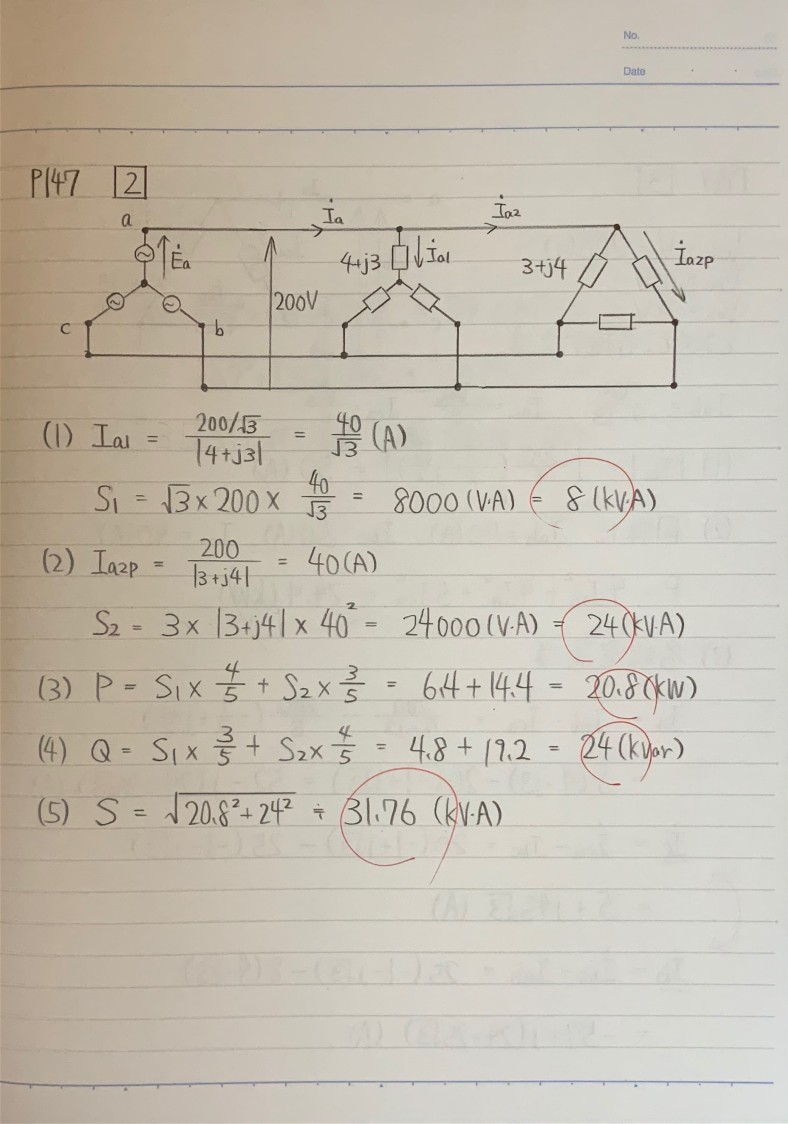 No.
Date
P147 [2]
a İa İa2
Ėa 4+j3 İa1 3+j4 İa2p
200V
c b
(1) Ia1 = (200/√3)/|4+j3| = 40/√3 (A)
S1 = √3 × 200 × 40/√3 = 8000 (V·A) = 8 (kV·A)
(2) Ia2p = 200/|3+j4| = 40 (A)
S2 = 3 × |3+j4| × 40² = 24000 (V·A) = 24 (kV·A)
(3) P = S1 × 4/5 + S2 × 3/5 = 6.4 + 14.4 = 20.8 (kW)
(4) Q = S1 × 3/5 + S2 × 4/5 = 4.8 + 19.2 = 24 (kvar)
(5) S = √(20.8² + 24²) ≒ 31.76 (kV·A)